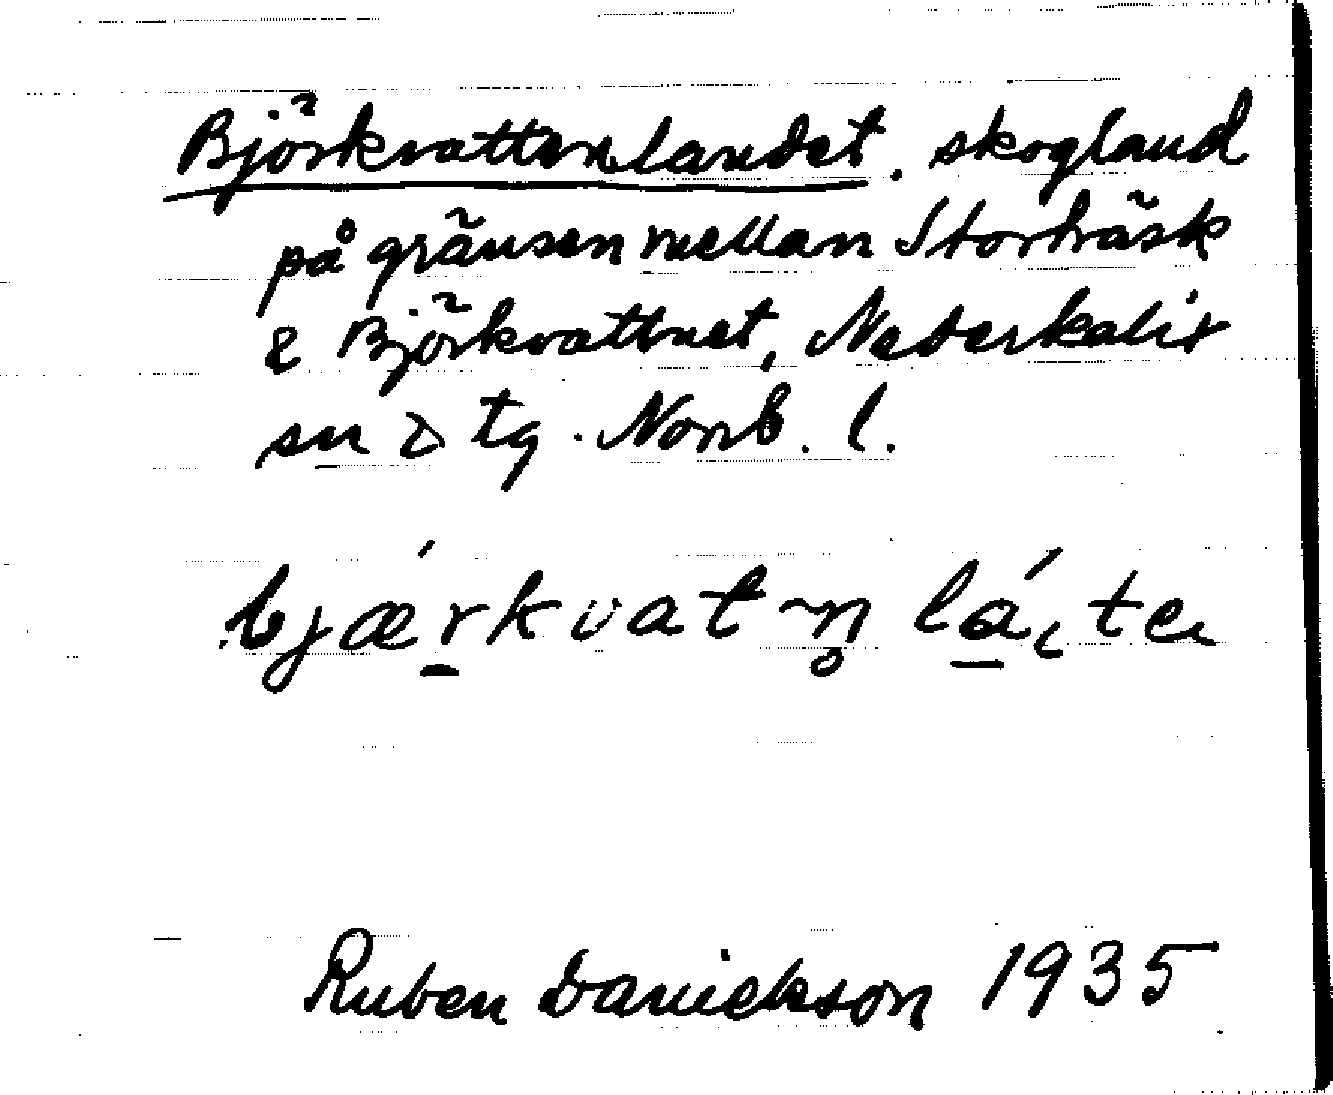 Björkvattenlandet. skogland
på gränsen mellan Storträsk
& Björkvattnet, Nederkalix
sn & tg. Norrb. l.
bjǽrkvatn̥ lá
Ruben Danielsson 1935